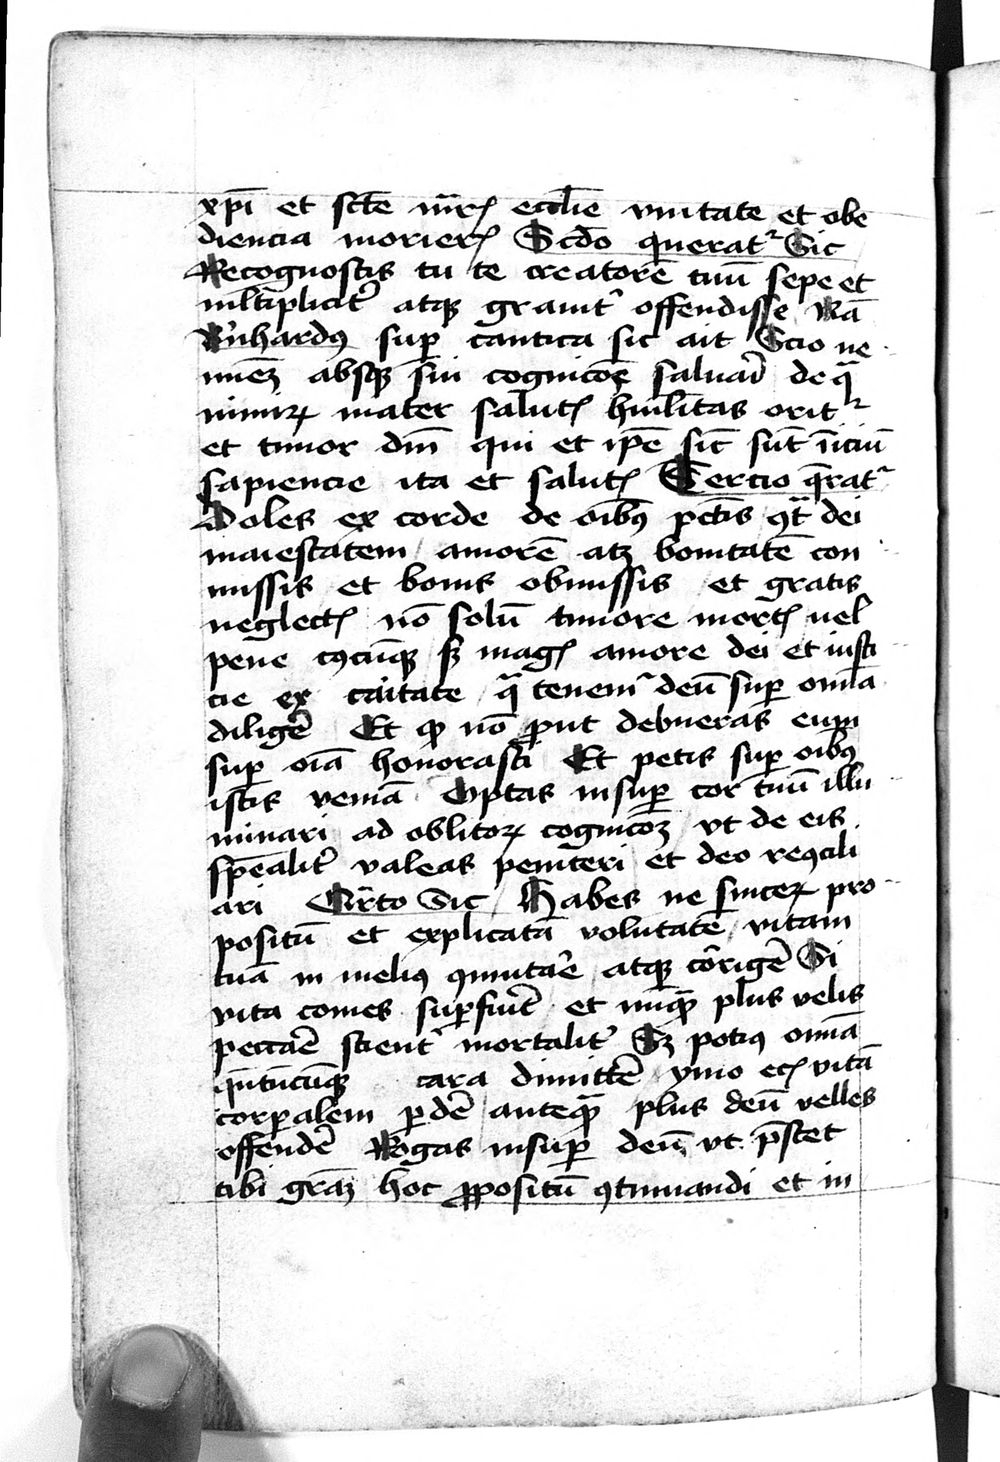 xpī et scē mr̄is eccl̄ie vnitate et obe
diencia morieris Scd̄o querat᷑ Sic
Recognoscis tu te creatorē tuū sepe et
ml̄tiplicit᷑ atqꝫ grauit᷑ offendisse Nā
B᷑nhardꝯ suꝑ cantica sic ait Scio ne
minēꝫ absqꝫ sui cognicōe saluari de qᷓ
nimirꝝ mater salutis hūilitas orit᷑
et timor dn̄i qui et ip̄e sic̄ sūt īiciū
sapiencie ita et salutis Tercio q̄rat᷑
Doles ex corde de oībꝯ pctīs ꝯt᷑ dei
maiestatem amorē atqꝫ bonitatē con
missis et bonis obmissis et gratis
neglectis nō solū timore mortis uel
pene cꝯcūqꝫ sꝫ magis amore dei et iusti
cie ex caritate qᷓ tenem᷑ deū suꝑ omīa
diligē Et qꝫ nō ꝓut debueras eum
suꝑ oīa honorasti Et petis suꝑ oībꝯ
istis veniā Optas insuꝑ cor tuū illu
minari ad oblitoꝝ cognicōꝫ vt de eis
spēalit᷑ valeas peniteri et deo reꝯcili
ari Q᷑rto Sic Habes ne sinceꝝ pro
positū et explicatā volūtatē vitam
tuā in meliꝯ ꝯmutāe atqꝫ cōrigē Si
vita comes suꝑfuīt et nūqꝫ plus velis
peccāe scient᷑ mortalit᷑ Sꝫ pociꝯ omīa
qn̄tūcūqꝫ cara dimittē ymo ecis vitā
corꝑalem ꝑdē anteqꝫ plus deū velles
offendē Rogas insuꝑ deū vt p̄stet
tibi grāꝫ hoc ꝓpositū ꝯtinuandi et in